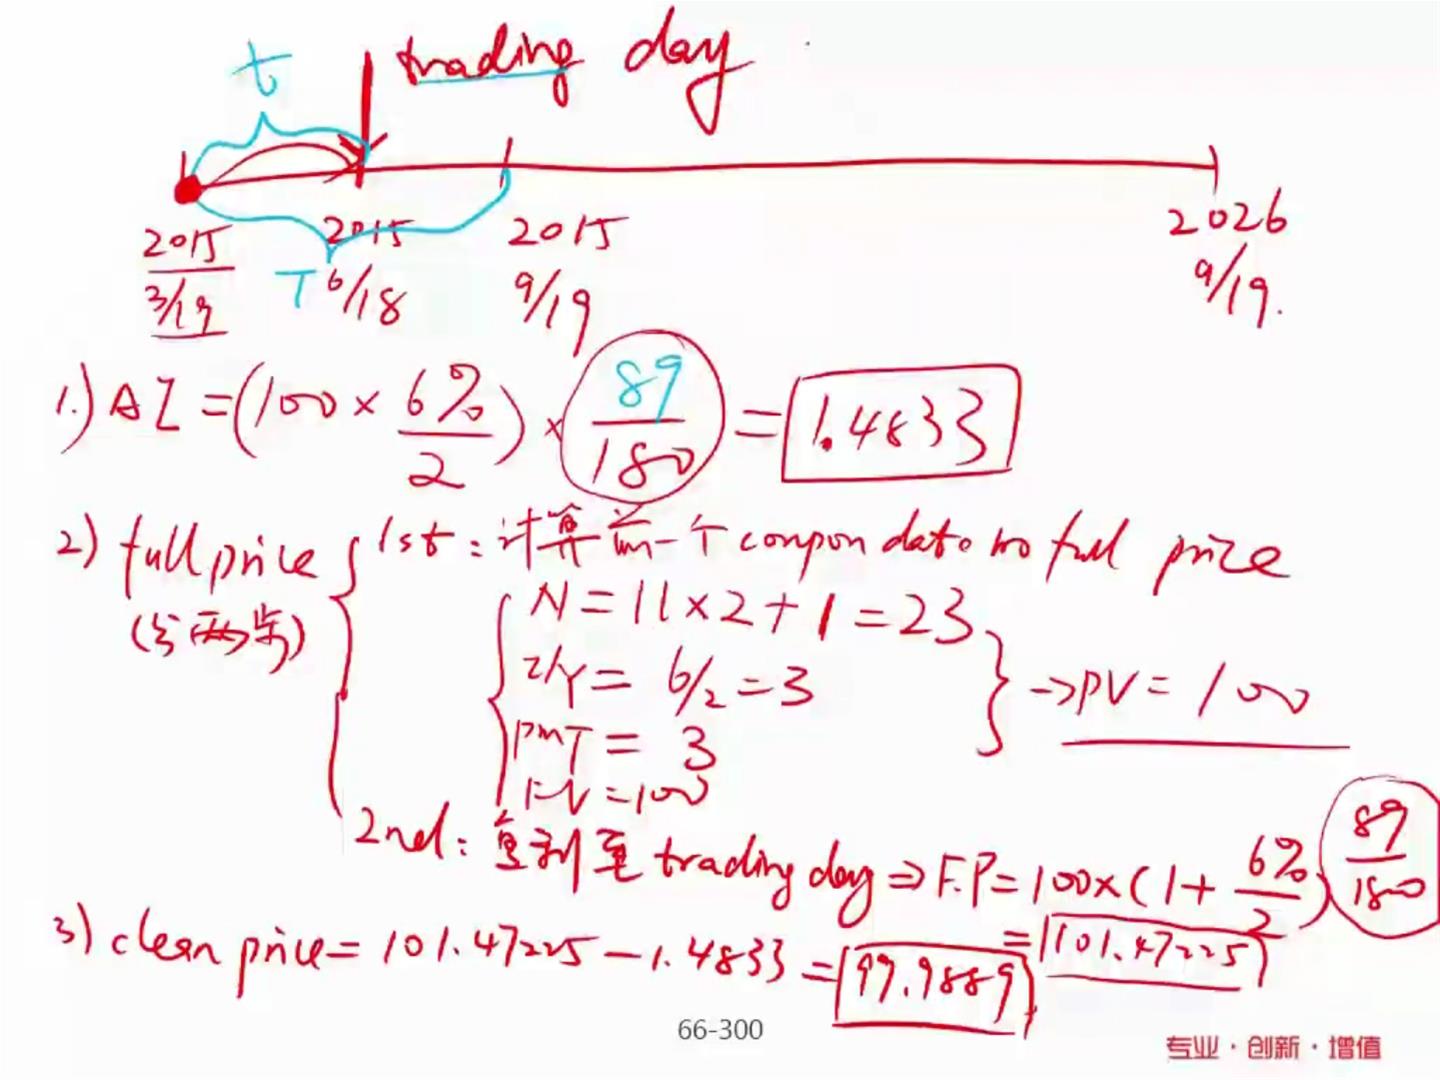 t trading day
2015 2015 2015 2026
3/19 T 6/18 9/19 9/19.
1.) AI = (100 × 6%/2) × 89/180 = 1.4833
2) full price { 1st: 计算前一个 coupon date no full price
(分两步) N = 11×2+1 = 23
I/Y = 6/2 = 3 → PV = 100
PMT = 3
FV = 100
2nd: 复利至 trading day ⇒ F.P = 100×(1+ 6%/2) 89/180
= 101.47225
3) clean price = 101.47225 - 1.4833 = 99.9889
66-300
专业·创新·增值